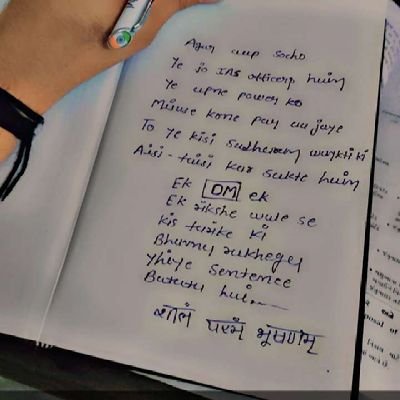 Agar aap socho
Ye jo IAS officers hain
Ye apne power ko
Misuse karne par aa jaye
To ye kisi sadharan waykti ki
Aisi-taisi kar sakte hain
Ek DM ek
Ek rikshe wale se
Kis tarike ki
rakhega
Yhiye sentence
Batata hai
शीलं परमं भूषणम्